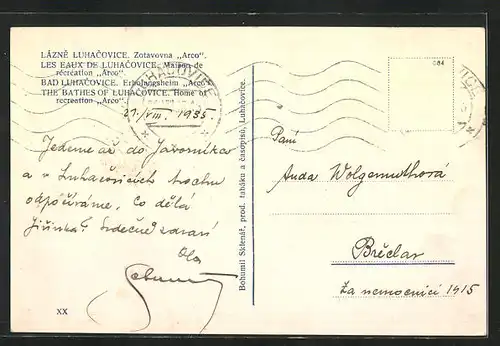 LÁZNĚ LUHAČOVICE. Zotavovna „Arco“.
LES EAUX DE LUHAČOVICE. Maison de
récréation „Arco“.
BAD LUHAČOVICE. Erholungsheim „Arco“.
THE BATHES OF LUHAČOVICE. Home of
recreation „Arco“.
LUHAČOVICE
21/VIII. 1935
Jedeme až do Javorníka
a v Luhačovicích trochu
odpočíváme. Co dělá
Jiřinka? Srdečně zdraví
XX
Bohumil Sklenář, prod. tabáku a časopisů, Luhačovice.
684
Paní
Anda Wolgemuthová
Břeclav
Za nemocnicí 1415